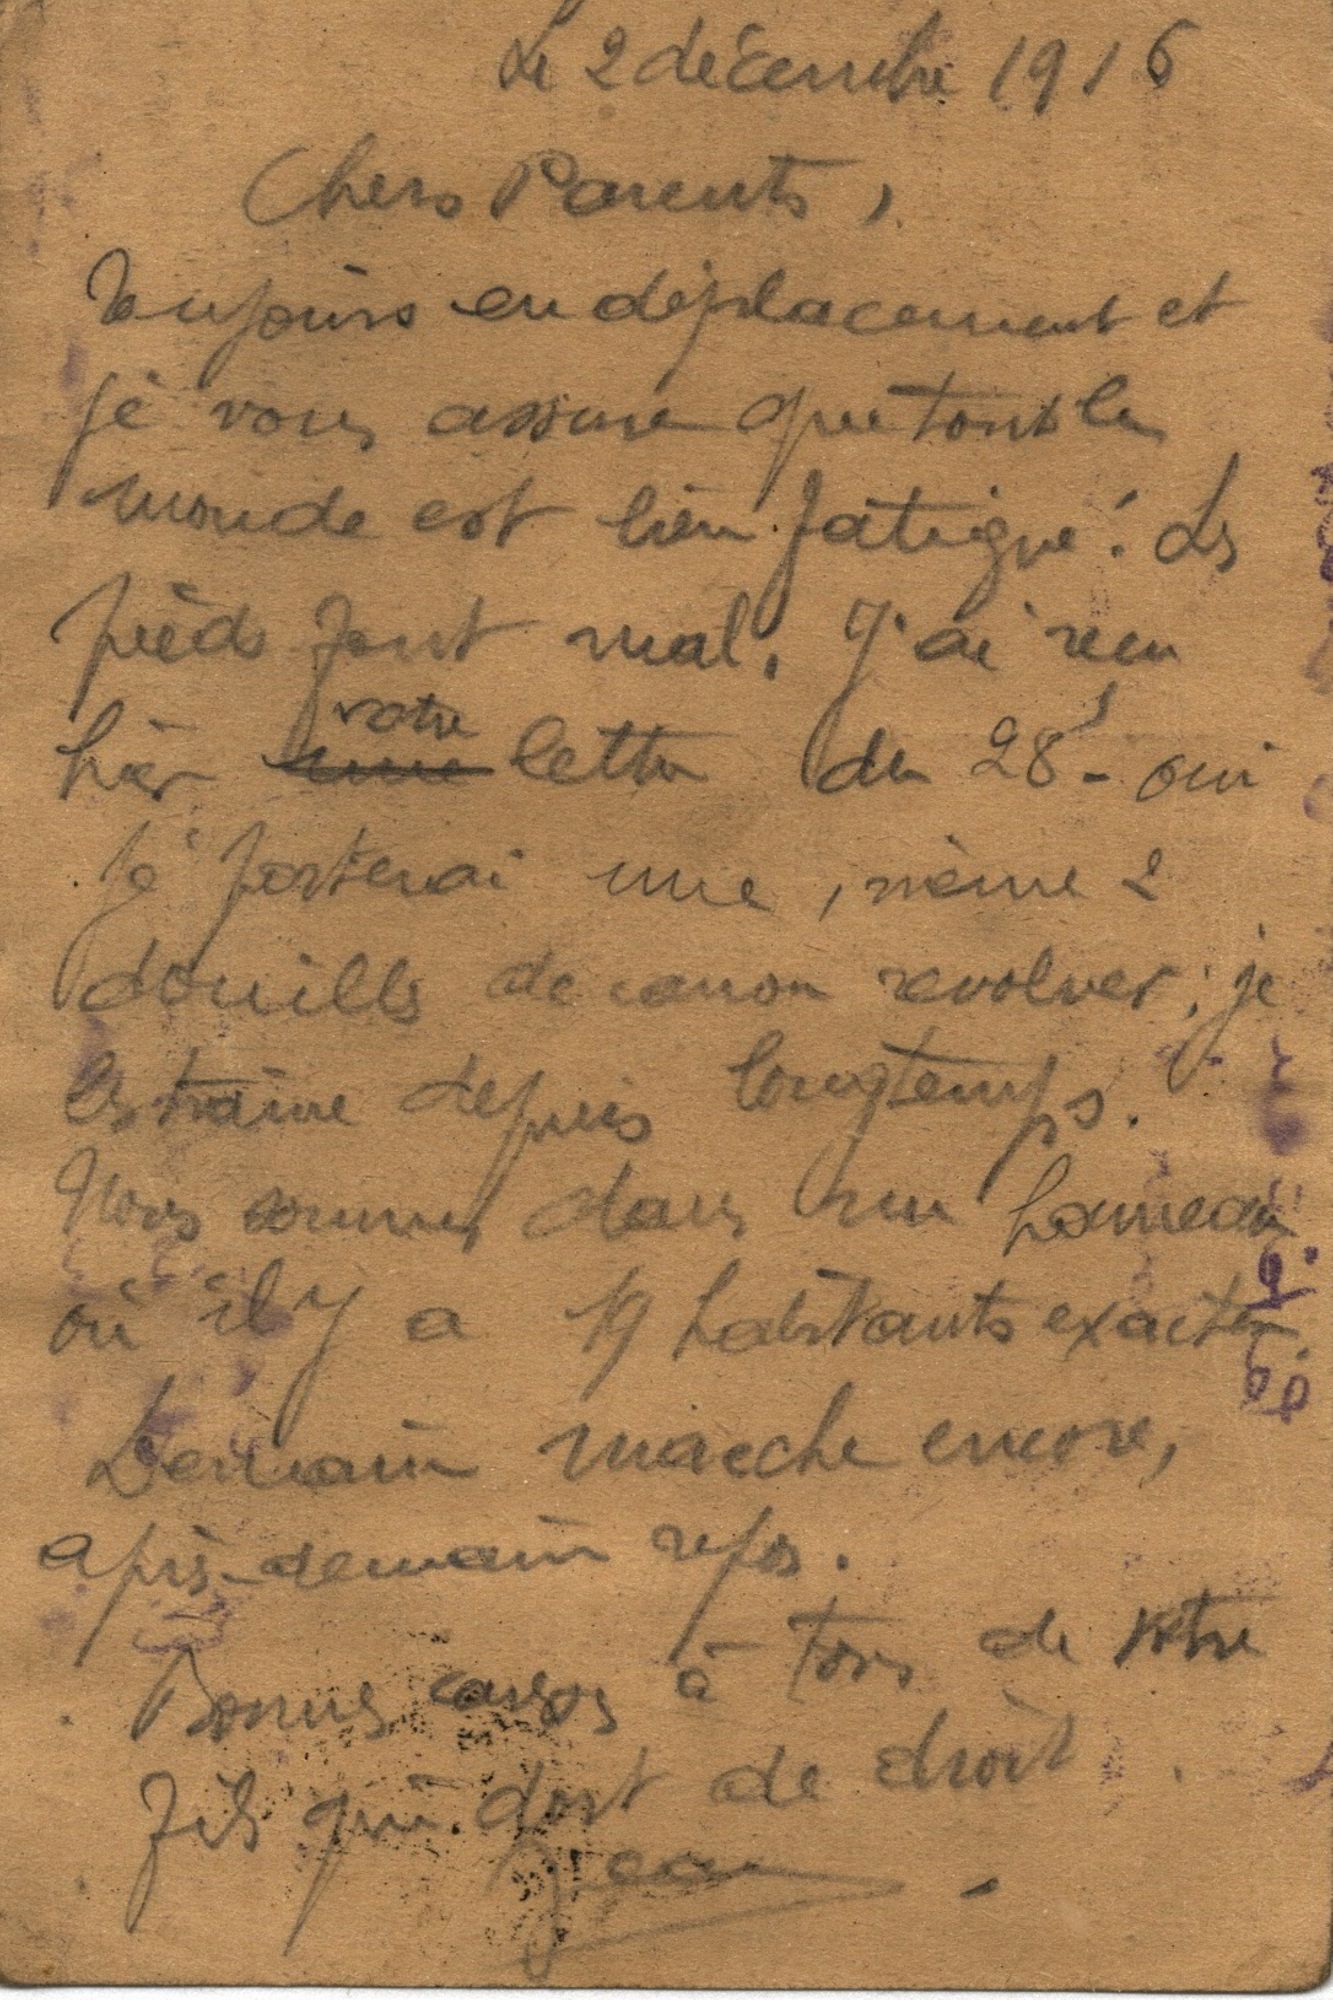 Le 2 décembre 1916
Chers Parents,
Toujours en déplacement et
je vous assure que tout le
monde est bien fatigué. Les
pieds font mal. J'ai reçu
hier votre lettre du 28 - oui
je porterai une, même 2
douilles de canon revolver; je
les traine depuis longtemps.
Nous sommes dans un hameau
où il y a 19 habitants exactem.
Demain marche encore,
après-demain repos.
Bonnes à tous de votre
fils qui dort de droit
Jean